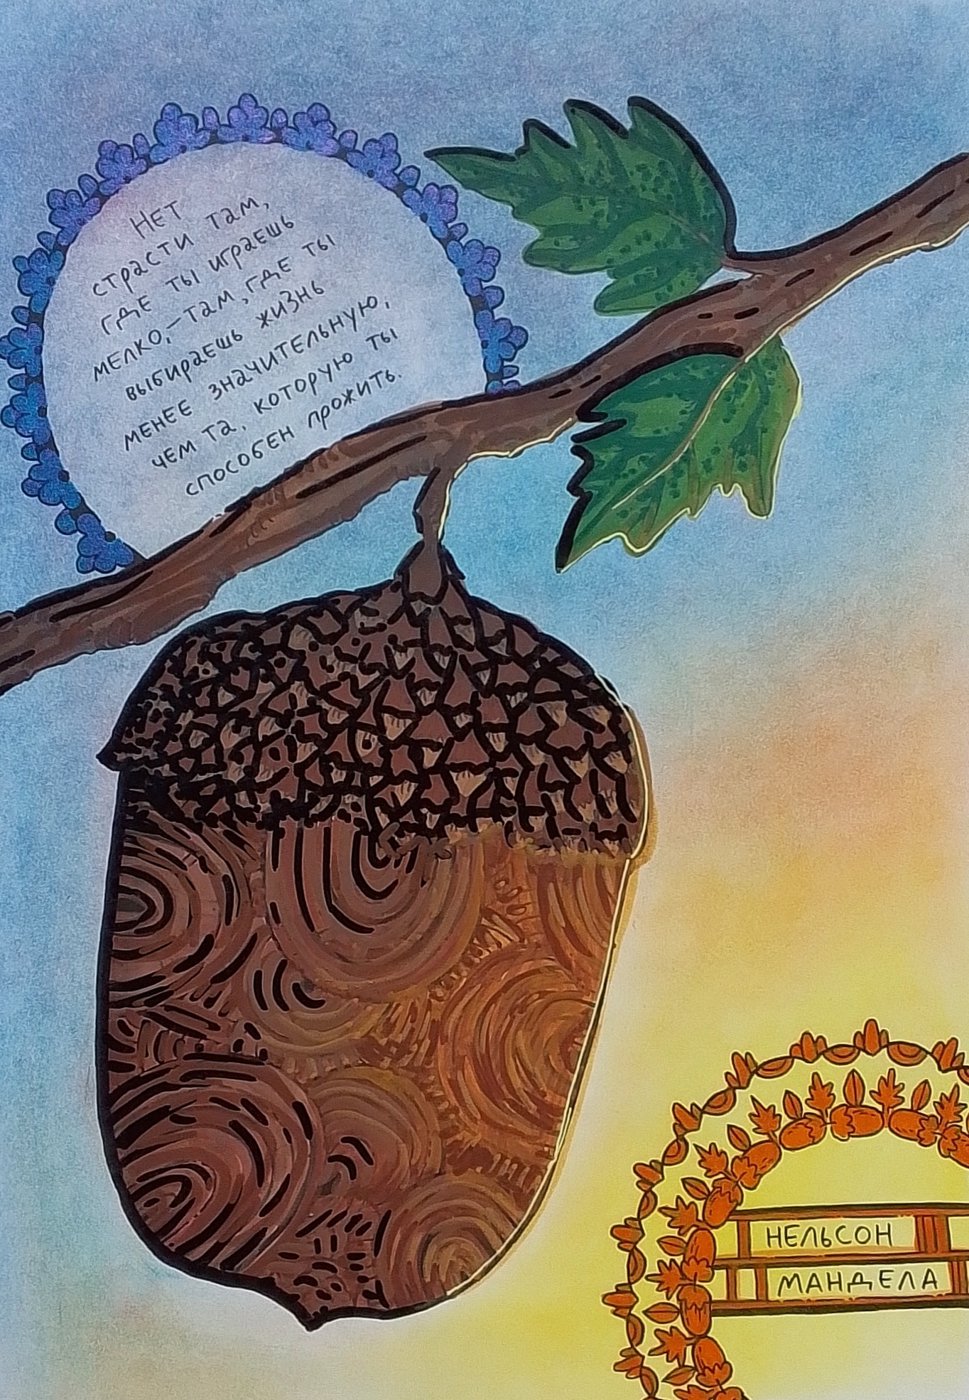 НЕТ
СТРАСТИ ТАМ,
ГДЕ ТЫ ИГРАЕШЬ
МЕЛКО,–ТАМ,ГДЕ ТЫ
ВЫБИРАЕШЬ ЖИЗНЬ
МЕНЕЕ ЗНАЧИТЕЛЬНУЮ,
ЧЕМ ТА, КОТОРУЮ ТЫ
СПОСОБЕН ПРОЖИТЬ.
НЕЛЬСОН
МАНДЕЛА